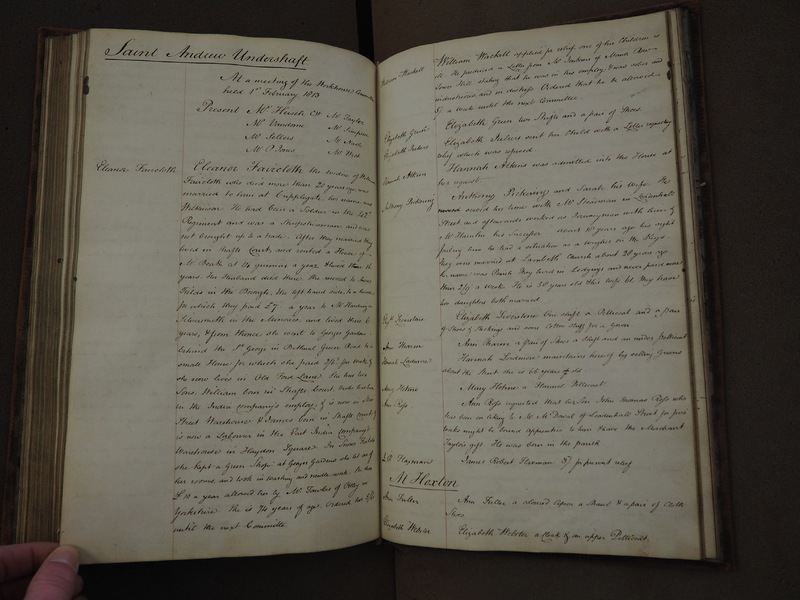 Saint Andrew Undershaft
At a meeting of the Workhouse Committee
held 1st February 1813
Present Mr Hersch Mr Taylor
Mr Vandome Mr Simpson
Mr Sellers Mr
Mr P Jones Mr West
Eleanor Faircloth Eleanor Faircloth the widow of William
Faircloth who died more than 20 years ago was
married to him at Cripplegate, her name was
Wilkinson. He had been a Soldier in the 42d
Regiment and was a and was
not brought up to a trade. After they married they
lived in Shafts Court, and rented a House of
Mr Heath at 14 guineas a year & lived there
years. Her Husband died there. She moved to
Fields in the Borough, the left hand side to a house
for which they paid £7 a year to Mr Harding a
Silversmith in the Minories, and lived there 6
years, & from thence she went to Georges Garden
behind the St George in Bethnal Green Road to a
small House for which she paid 2/6 pr week, &
she now lives in Old Ford Lane. She has two
Sons, William born in Shafts Court, who has been
in the India company's employ, & is now in New
Street Warehouse & James born in Shafts court &
is now a Labourer in the East India Company's
Warehouse in Haydon Square. In Fields
she kept a Green Shop at Georges Gardens she let out
her rooms, and took in washing and needle work. She has
£10 a year allowed her by Mr Fawkes of Otley in
Yorkshire. She is 74 years of age. Ordered her
until the next Committee.
William Wackell William Wackell applied for relief, one of his Children is
ill. He produced a Letter from Mr of
Tower Hill stating that he was in his employ, & was sober and
industrious and in distress. Ordered that he be allowed
5/ a week until the next Committee.
Elizabeth Green Elizabeth Green two Shifts and a pair of Shoes
Elizabeth Elizabeth sent her Child with a Letter requesting
relief which was refused
Hannah Atkins Hannah Atkins was admitted into the House at
her request
Anthony Pickering Anthony Pickering and Sarah his wife. He
served his time with Mr Shearman in Leadenhall
Street and afterwards worked as Journeyman with him, &
Mr Hamlin his Successor. About 10 years ago his sight
failing him he had a situation as a weigher on the Keys
they were married at Lambeth Church about 20 years ago
her name was They lived in Lodgings and never paid more
than 2/9 a week. He is 50 years old this wife 61. They have
two daughters both married
Elizth Liverstone Elizabeth Liverstone One shift a Petticoat and a pair
of Shoes & Stockings and some cotton stuff for a Gown
Ann Ann a pair of Shoes a shift and an under petticoat
Hannah Lardmore Hannah Lardmore maintains herself by selling Greens
about the Street she is 66 years of old
Mary Holme Mary Holme a Flannel Petticoat
Ann Ross Ann Ross requested that her Son John Thomas Ross who
has been on liking to Mr McDuval of Leadenhall Street for five
weeks might be bound apprentice to him & have the Merchant
Taylors gift. He was born in the parish
J R Flaxman James Robert Flaxman 5/ for present relief
At Hoxton
Ann Fuller Ann Fuller a colored Apron a Shawl & a pair of Cloth
Shoes
Elizabeth Webster Elizabeth Webster a Cloak & an upper Petticoat